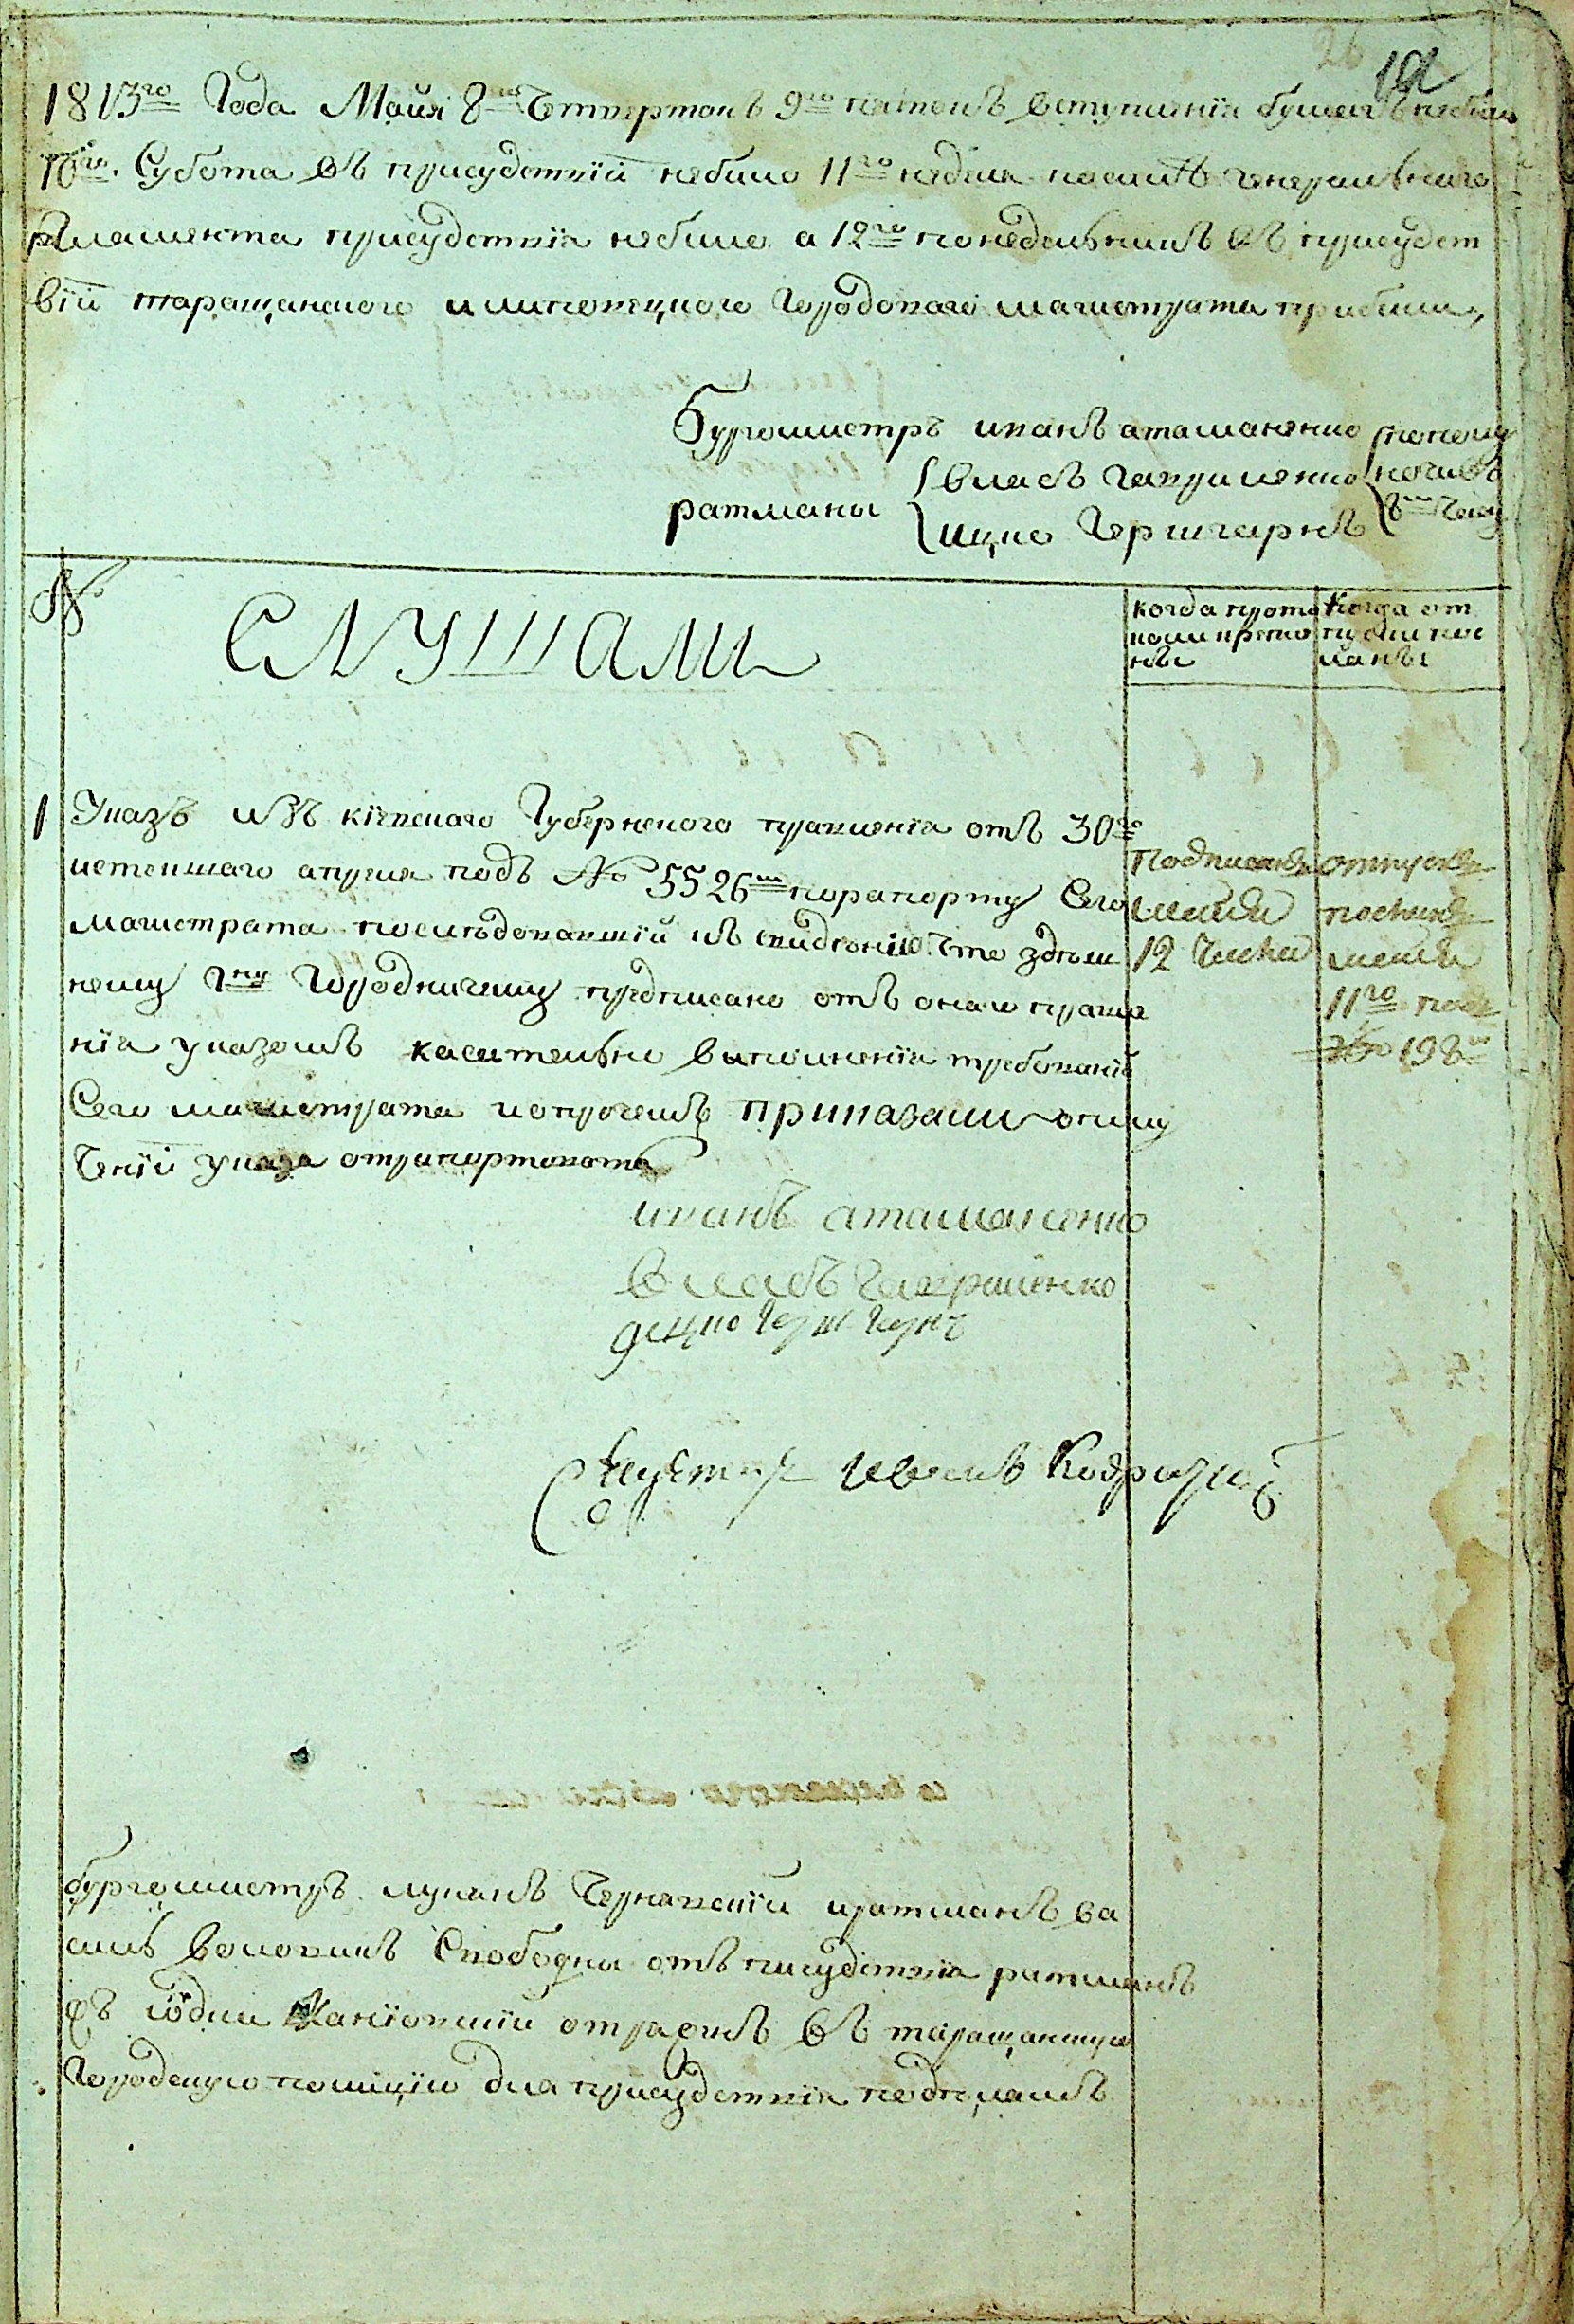 26 12
1813го Года Майя 8го Четвертокъ 9го пятокъ вступления бумагъ небыло
10го. Субота въ присудствїи небыло 11го неделя посилѣ генеральнаго
регламента присудствїя небыло а 12го понедельникъ въ присудст
вїи таращанского и липовецкого Городового магистрата прибыли,
Бургомистръ иванъ атаманенко
ратманы власъ гавриленко
ицко Гершгарнъ
пополу
ночи въ
8м Часу
№
СЛУШАЛИ
когда прото
коли крепле
нъ
Когда от
пуски пос
ланы
1 Указъ изъ кїевского Губернского правленїя отъ 30го
истекшаго апреля подъ № 5526м порапорту Сего
магистрата последовавшїй къ сведѣнїю что здѣш
нему Гну Городничему предписано отъ онаго правле
нїя указомъ касательно выполненїя требованїй
Сего магистрата и опрочемъ приказали ополу
ченїи указа отрапортовать
Подписанъ
майя
12 Числа
отпускъ
посланъ
майя
11го подъ
№ 198м
иванъ атаманенко
власъ гавриленко
ицко Гершгарнъ
Секретарь Иванъ
бургомистръ лукянъ Чернавскїй иратманъ ва
силь воловикъ Свободны отъ присудствїя ратманъ
Канїовскїй отряженъ въ таращанскую
Городскую полицїю для присудствїя